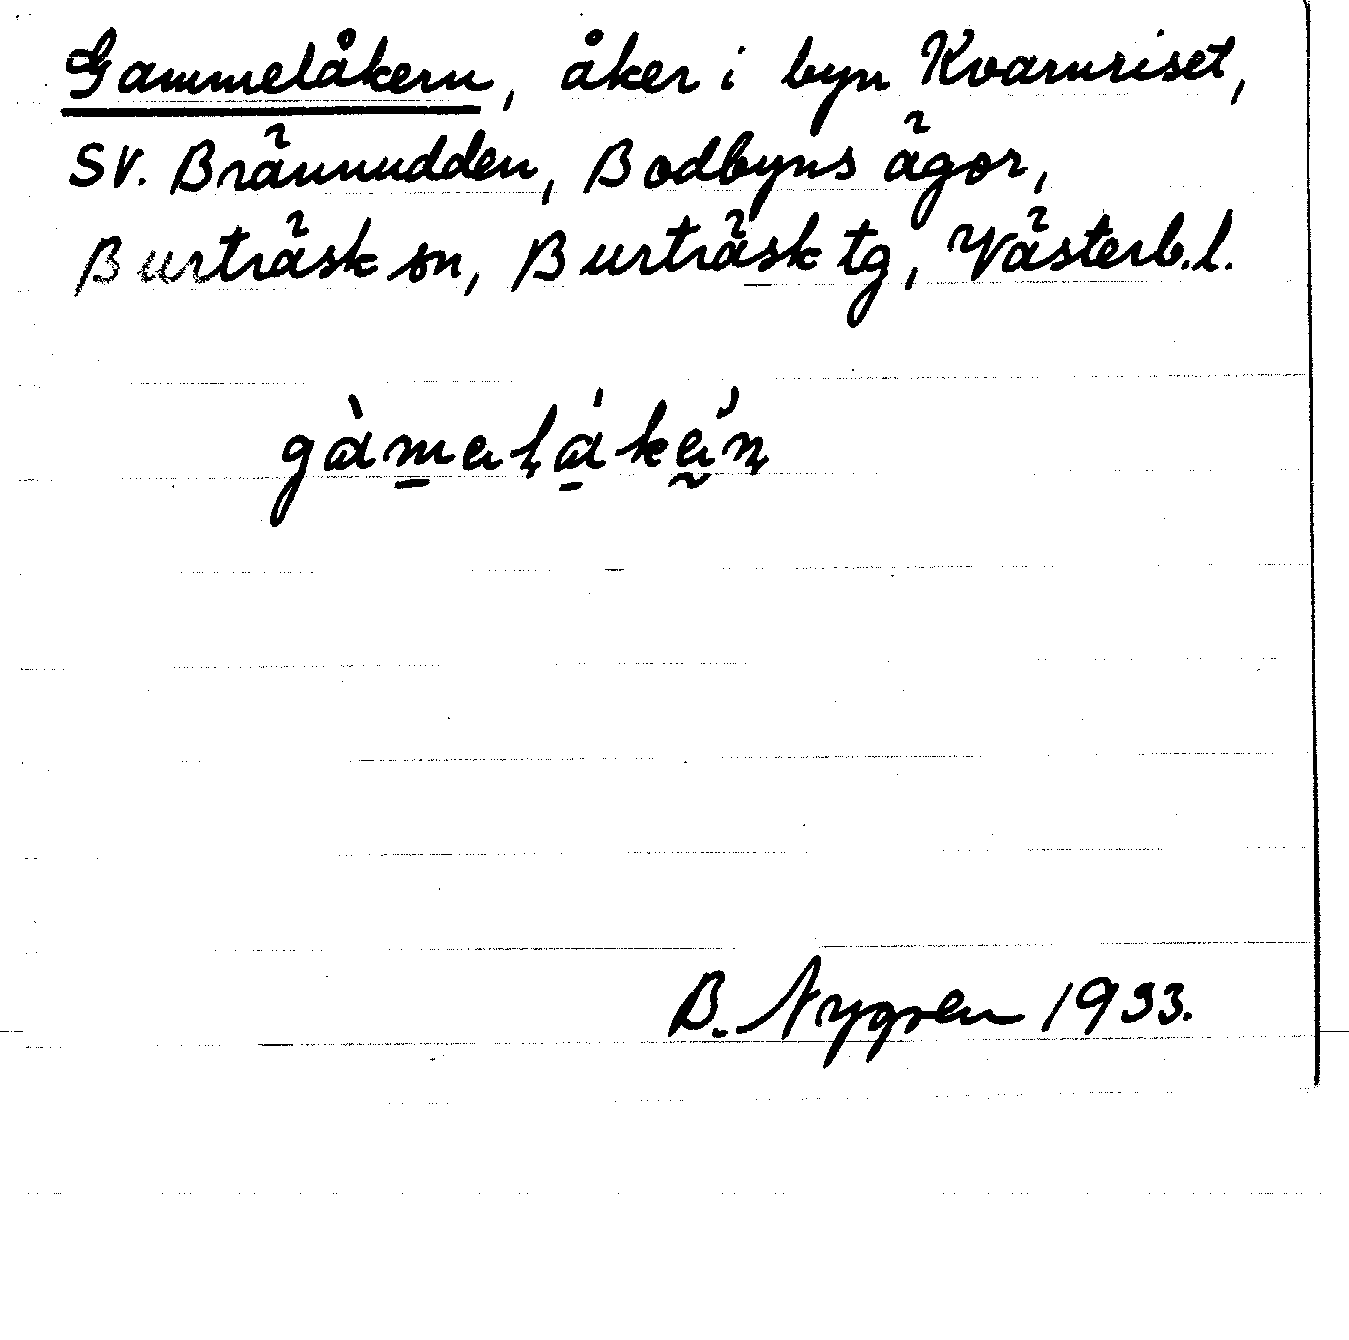 Gammelåkern, åker i byn Kvarnriset,
SV. Brännudden, Bodbyns ägor,
Burträsk sn, Burträsk tg, Västerb.l.
gàmalákán
B. Nygren 1933.